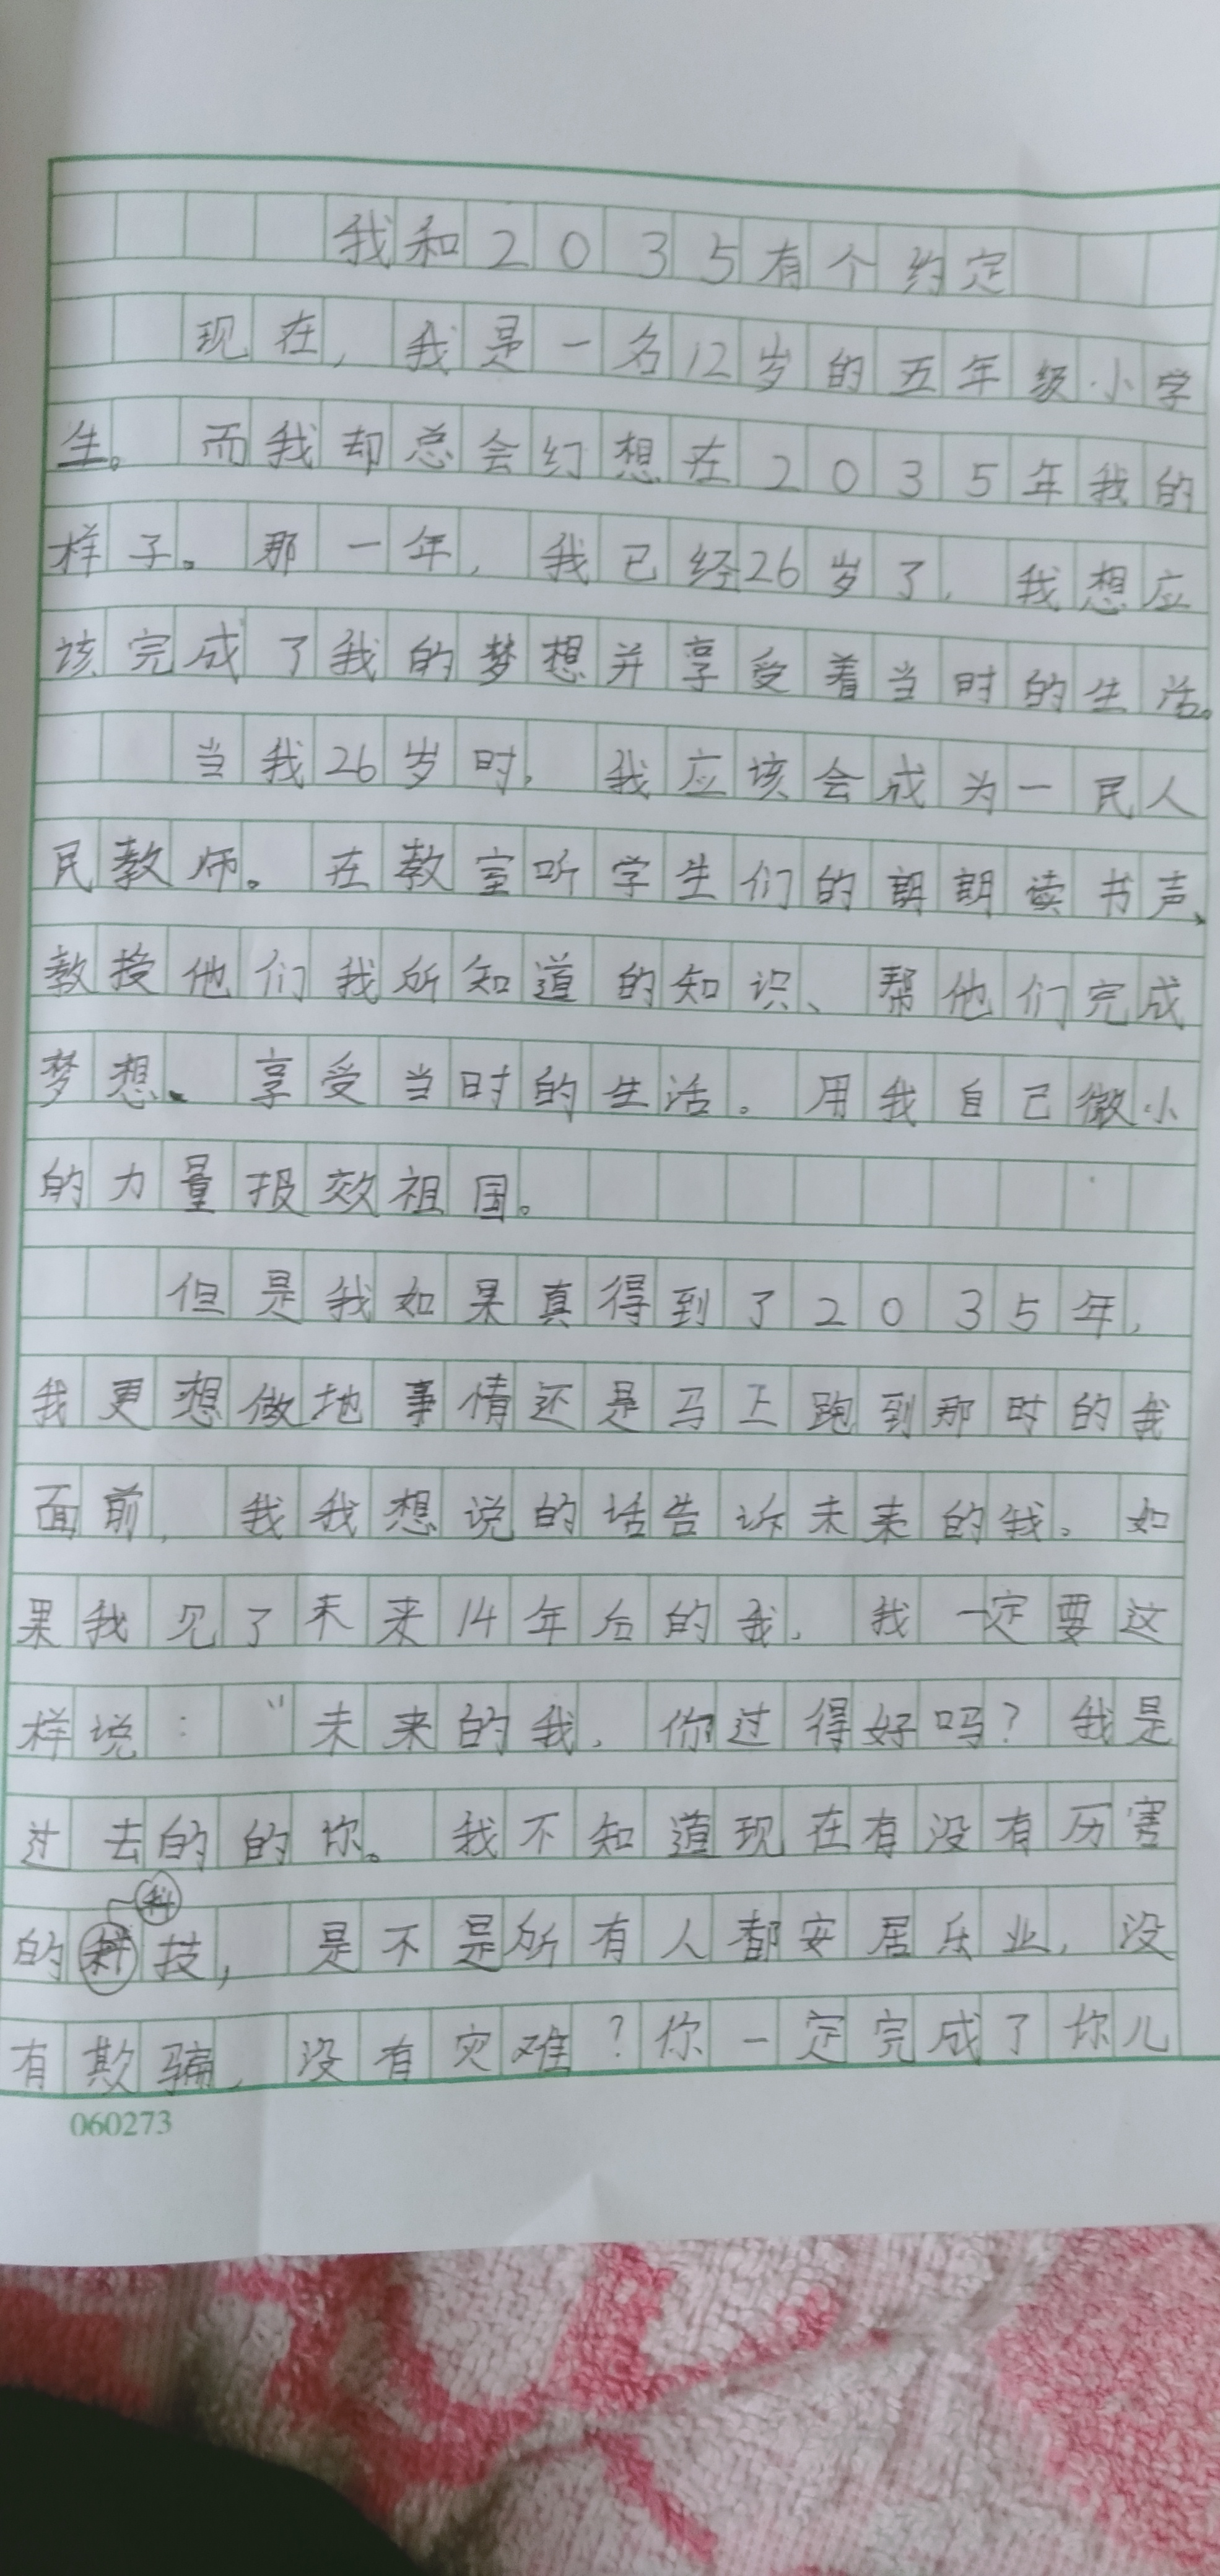 我和2035有个约定
现在，我是一名12岁的五年级小学
生。而我却总会幻想在2035年我的
样子。那一年，我已经26岁了，我想应
该完成了我的梦想并享受着当时的生活。
当我26岁时，我应该会成为一民人
民教师。在教室听学生们的朗朗读书声、
教授他们我所知道的知识、帮他们完成
梦想、享受当时的生活。用我自己微小
的力量报效祖国。
但是我如果真得到了2035年，
我更想做地事情还是马上跑到那时的我
面前，我我想说的话告诉未来的我。如
果我见了未来14年后的我，我一定要这
样说：“未来的我，你过得好吗？我是
过去的的你。我不知道现在有没有历害
科
的技，是不是所有人都安居乐业，没
有欺骗，没有灾难？你一定完成了你儿
060273